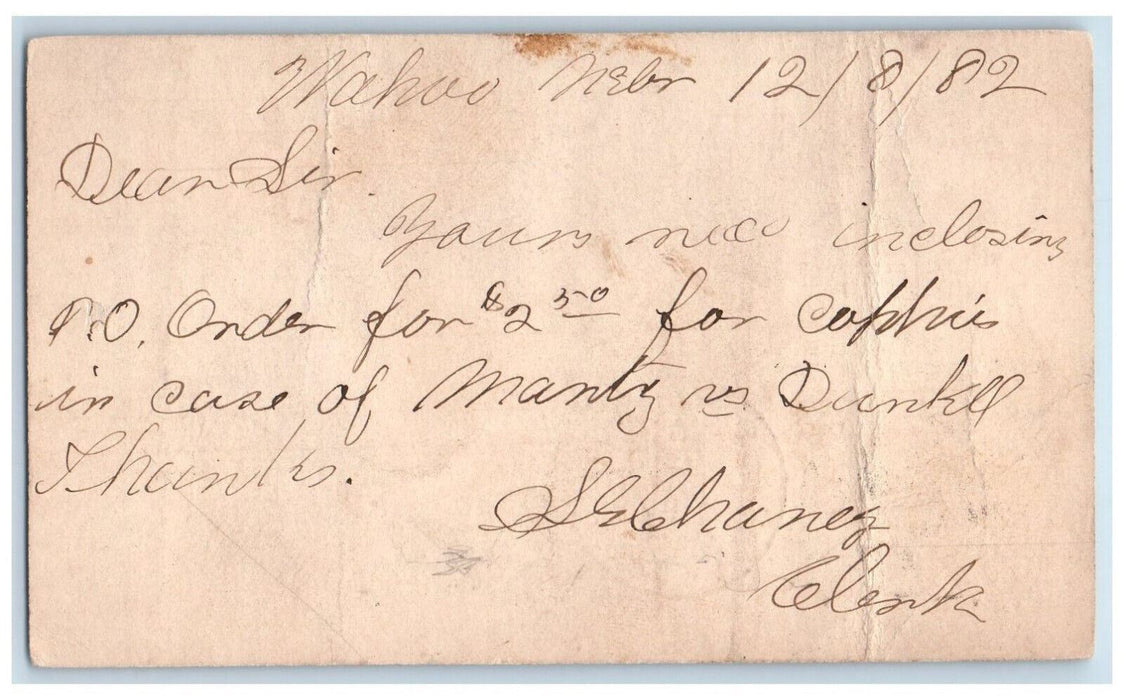 Wahoo Nebr 12/8/82
Dear Sir.
Yours recd inclosing
P.O. Order for $2 50 for cophies
in case of Mantz vs Dunkll
Thanks.
S E Chaney
Clerk